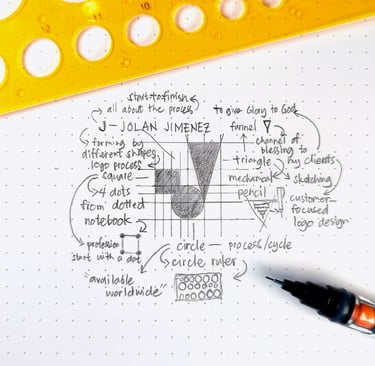 start-to-finish
all about the process
to give Glory to God
J - JOLAN JIMENEZ
funnel
forming by
different shapes
logo process
channel of
blessing to
my clients
triangle
square
mechanical
pencil
sketching
4 dots
from dotted
notebook
customer-
focused
logo design
profession
start with a dot
circle — process/cycle
circle ruler
"available
worldwide"